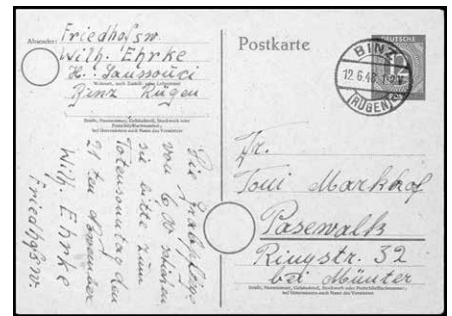 Absender: Friedhofsw.
Wilh. Ehrke
H. Sanssouci
Binz Rügen
Wohnort, auch Zustell- oder Leitpostamt
Straße, Hausnummer, Gebäudeteil, Stockwerk oder
Postschließfachnummer;
bei Untermietern auch Name des Vermieters
Postkarte
DEUTSCHE
BINZ
12.6.48
(RÜGEN)
Fr.
Toni Markhof
Pasewalk
Ringstr. 32
bei Münter
Straße, Hausnummer, Gebäudeteil, Stockwerk oder Postschließfachnummer;
bei Untermietern auch Name des Vermieters
Die Grabpflege
von 6.00 schicken
sie bitte zum
Totensonntag den
21 ten November
Wilh. Ehrke
Friedhofsw.